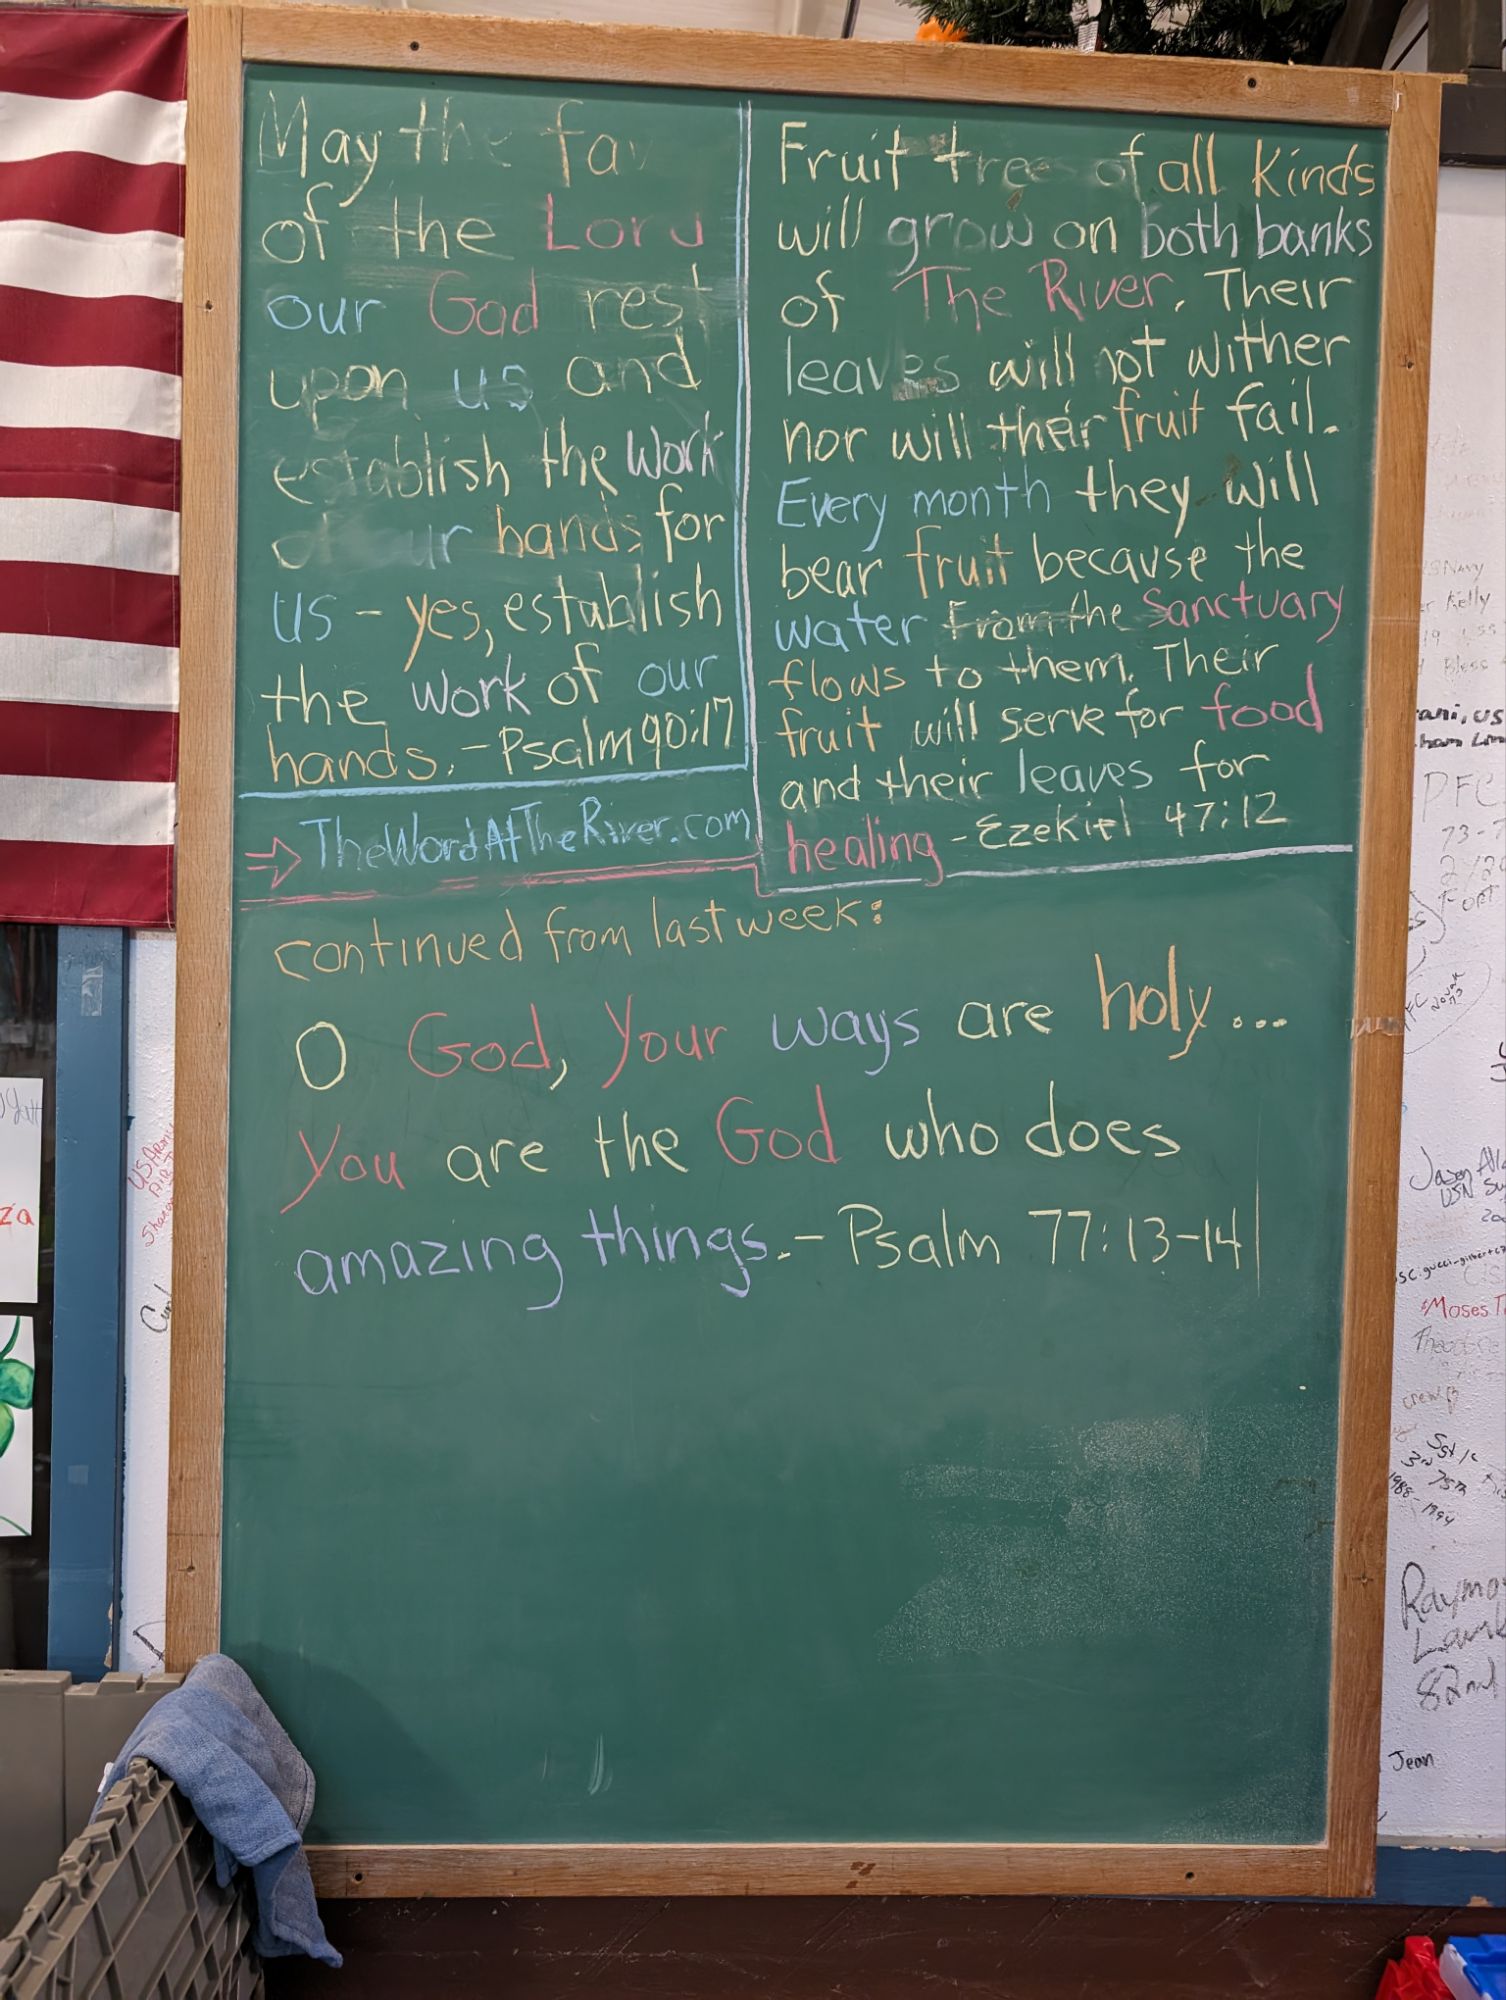 May the fav
of the Lord
our God rest
upon us and
establish the work
of our hands for
us - yes, establish
the work of our
hands. - Psalm 90:17
→ TheWordAtTheRiver.com
Fruit trees of all kinds
will grow on both banks
of The River. Their
leaves will not wither
nor will their fruit fail.
Every month they will
bear fruit because the
water from the Sanctuary
flows to them. Their
fruit will serve for food
and their leaves for
healing - Ezekiel 47:12
continued from last week:
O God, Your ways are holy...
You are the God who does
amazing things. - Psalm 77:13-14
US Army
za
Navy
Kelly
Bless
PFC
PFC
Jason
USN
Moses
1988-1994
82nd
Jean